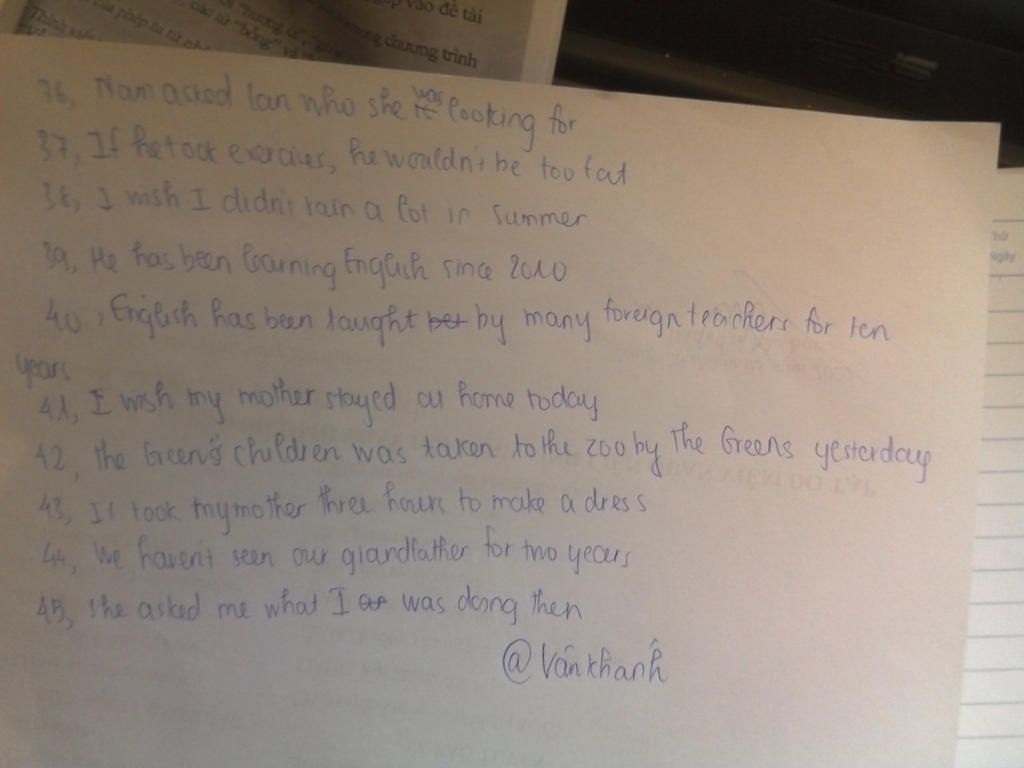 góp vào đề tài
chương trình
36, Nam asked lan who she was looking for
37, If he took exercises, he wouldn't be too fat
38, I wish I didn't rain a lot in summer
39, He has been learning English since 2010
40, English has been taught by many foreign teachers for ten
years
41, I wish my mother stayed at home today
42, the Green's children was taken to the zoo by The Greens yesterday
43, It took my mother three hours to make a dress
44, We haven't seen our grandfather for two years
45, She asked me what I was doing then
@Vánkhanh